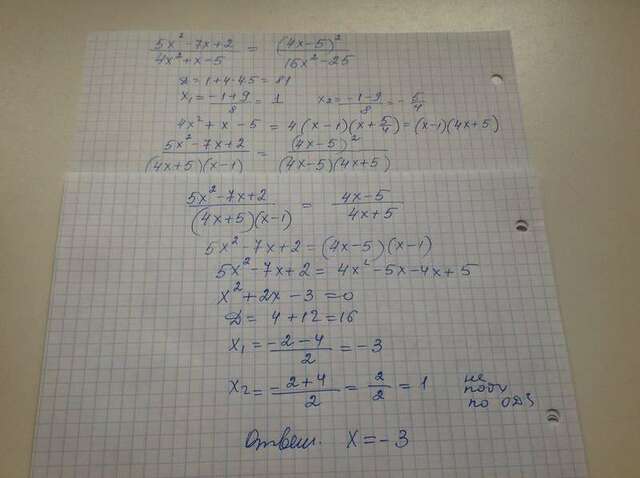 (5x² - 7x + 2)/(4x² + x - 5) = (4x - 5)²/(16x² - 25)
D = 1 + 4·4·5 = 81
x₁ = (-1 + 9)/8 = 1 x₂ = (-1 - 9)/8 = -5/4
4x² + x - 5 = 4(x - 1)(x + 5/4) = (x - 1)(4x + 5)
(5x² - 7x + 2)/((4x + 5)(x - 1)) = (4x - 5)²/((4x - 5)(4x + 5))
(5x² - 7x + 2)/((4x + 5)(x - 1)) = (4x - 5)/(4x + 5)
5x² - 7x + 2 = (4x - 5)(x - 1)
5x² - 7x + 2 = 4x² - 5x - 4x + 5
x² + 2x - 3 = 0
D = 4 + 12 = 16
x₁ = (-2 - 4)/2 = -3
x₂ = (-2 + 4)/2 = 2/2 = 1 не
подх
по ОДЗ
Ответ. x = -3